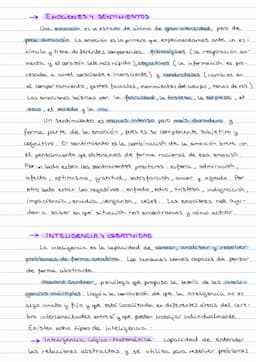 → EMOCIONES Y SENTIMIENTOS
Una emoción es un estado de ánimo de gran intensidad, pero de
poca duración. La emoción es lo primero que experimentamos ante un es-
tímulo y tiene diferentes componentes: fisiológicos (la respiración au-
menta, y el corazón late más rápido), cognitivos (la información es pro-
cesada a nivel consciente e inconsciente) y conductuales (cambios en
el comportamiento, gestos faciales, movimientos del cuerpo, tonos de voz).
Las emociones básicas son la felicidad, la tristeza, la sorpresa, el
asco, el miedo y la ira.
Un sentimiento es menos intenso pero más duradero y
forma parte de la emoción, pues es su componente subjetivo y
cognitivo. El sentimiento es la combinación de la emoción breve con
el pensamiento que obtenemos de forma racional de esa emoción.
Por un lado están los sentimientos positivos: euforia, admiración,
afecto, optimismo, gratitud, satisfacción, amor y agrado. Por
otro lado están los negativos: enfado, odio, tristeza, indignación,
impaciencia, envidia, venganza, celos. Las emociones nos ayu-
dan a saber en qué situación nos encontramos y cómo actuar.
→ INTELIGENCIA Y CREATIVIDAD
La inteligencia es la capacidad de conocer, analizar y resolver
problemas de forma creativa. Los humanos somos capaces de pensar
de forma abstracta.
Howard Gardner, psicólogo que propuso la teoría de las intelig-
encias múltiples. Llegó a la conclusión de que la inteligencia no es
algo único y fijo y que está localizada en diferentes áreas del cere-
bro interconectadas entre sí y que pueden trabajar individualmente.
Existen ocho tipos de inteligencia:
→ Inteligencia lógico-matemática: capacidad de entender
las relaciones abstractas y se utiliza para resolver problemas